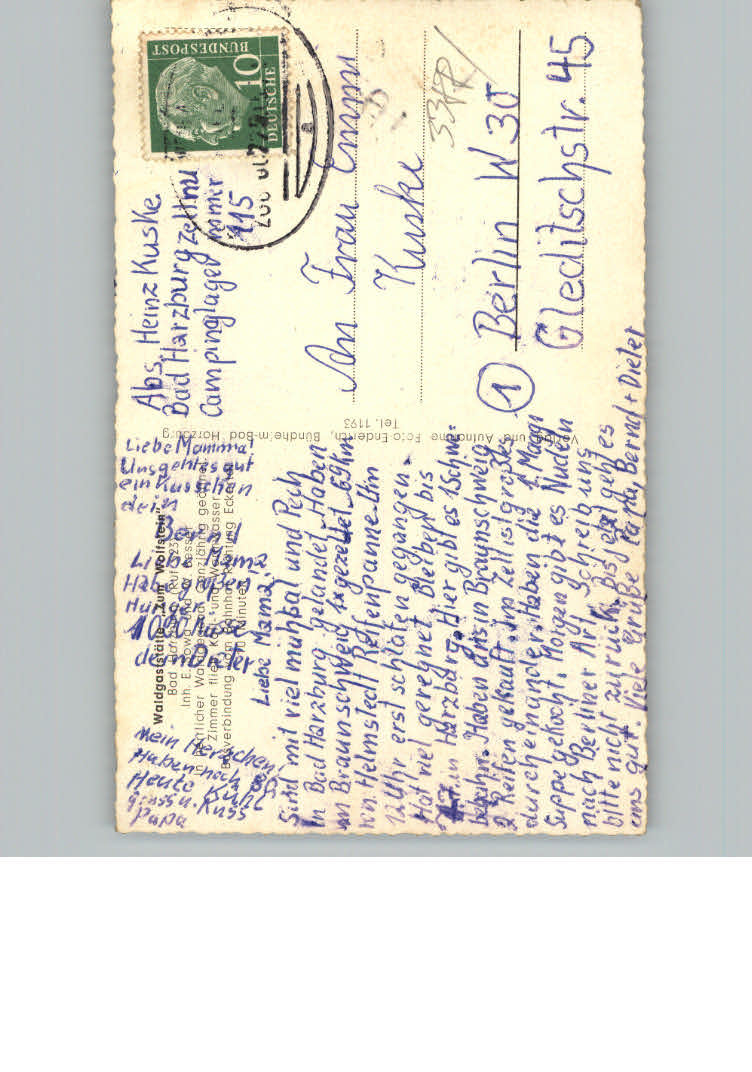 Waldgaststätte „Zum Wolfstein"
Bad Harzburg, Ruf 23
Inh. E.
Zimmer fließ. Kalt- und Warmwasser
Busverbindung vom Bahnhof Richtung Eckertal
10 Minuten
Liebe Mamma!
Uns gehts gut
ein Küsschen
dein
Bernd
Liebe Mama
Habe großen
Hunger
1000 Küsse
dein Dieter
Mein Herzchen!
Haben noch
Heute Kühl
Gruss u. Kuss
Papa
Liebe Mama,
Sind mit viel mühsal und Pech
in Bad Harzburg gelandet. Haben
in Braunschweig gezeltet. 69 km
von Helmstedt Reifenpanne. Um
12 Uhr erst schlafen gegangen.
Hat viel geregnet. Bleiben bis
in Harzburg. Hier gibt es 1 Schwe-
bebahn. Haben uns in Braunschweig
2 Reifen gekauft. im Zelt ist großes
durcheinander. Haben die 1. Maggi
Suppe gekocht. Morgen gibt es Nudeln
nach Berliner Art. Schreib uns
bitte nicht zurück. Bis jetzt geht es
uns gut. Viele Grüße Papa, Bernd + Dieter
Verlag und Aufnahme Foto Enderich, Bündheim-Bad Harzburg
Tel. 1193
Abs. Heinz Kuske
Bad Harzburg Zeltnu
Campinglager mmer
115
DEUTSCHE
BUNDESPOST
10
An Frau Emmi
Kuske
① Berlin W 30
Gleditschstr. 45